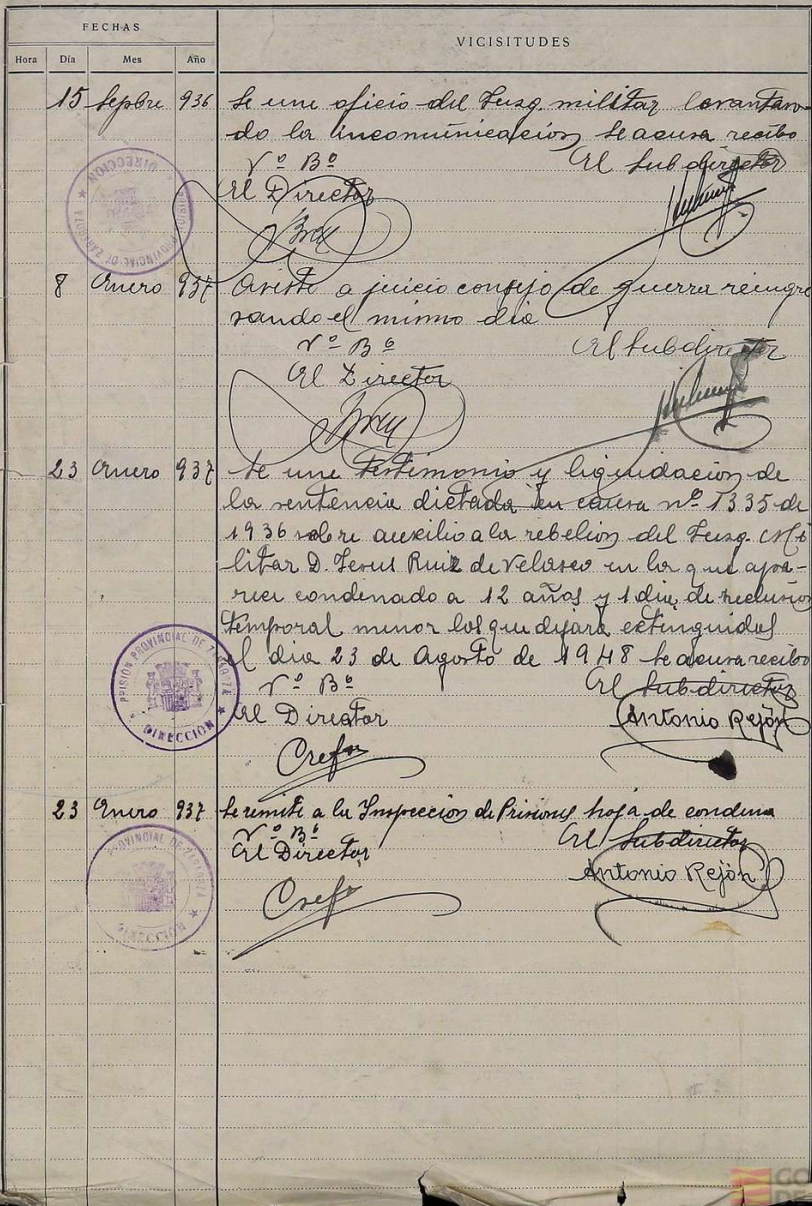 FECHAS
VICISITUDES
Hora Día Mes Año
15 Sepbre 936 Se une oficio del Juzg. militar levantan
do la incomunicación, se acusa recibo
Vº Bº El Subdirector
El Director
PRISIÓN PROVINCIAL DE ZARAGOZA
DIRECCIÓN
8 Enero 937 Asiste a juicio consejo de guerra reingre
sando el mismo dia
Vº Bº El Subdirector
El Director
23 Enero 937 Se une testimonio y liquidación de
la sentencia dictada en causa nº 1335 de
1936 sobre auxilio a la rebelión del Juzg. Mi
litar D. Jesus Ruiz de Velasco en la que apa-
rece condenado a 12 años y 1 dia de reclusión
temporal menor los que dejará extinguidos
el dia 23 de Agosto de 1948 se acusa recibo
Vº Bº El Subdirector
El Director Antonio Rejón
PRISIÓN PROVINCIAL DE ZARAGOZA
DIRECCIÓN
23 Enero 937 Se remite a la Inspección de Prisiones hoja de condena
Vº Bº El Subdirector
El Director Antonio Rejón
PROVINCIAL DE ZARAGOZA
DIRECCIÓN